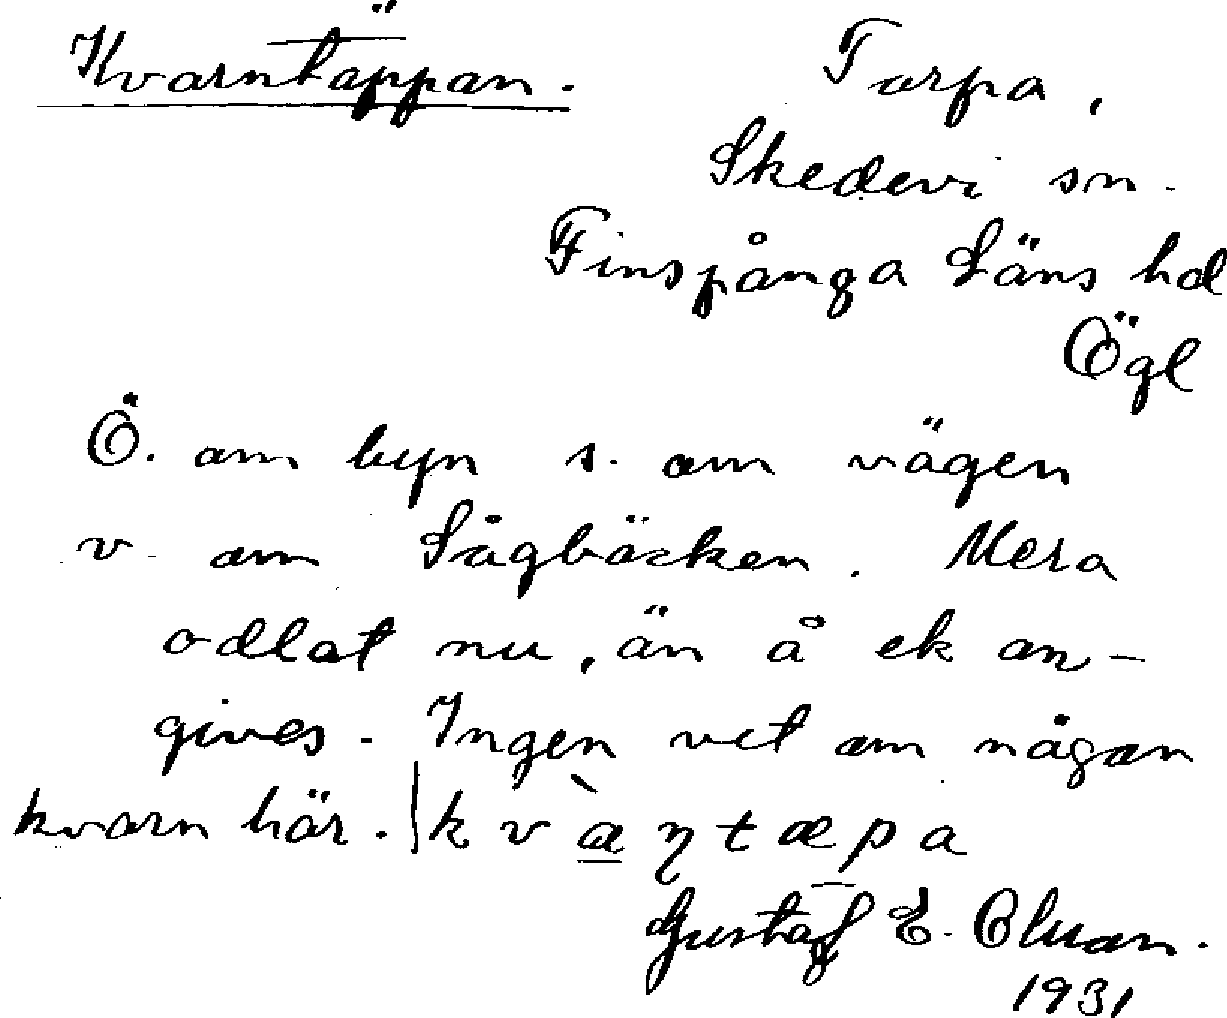 Kvarntäppan.
Torpa,
Skedevi sn.
Finspånga Läns hd
Ögl
Ö. om byn s. om vägen
v. om Sågbäcken. Mera
odlat nu, än å ek an-
gives. Ingen vet om någon
kvarn här. | kvàη tæpa
Gustaf E.
1931